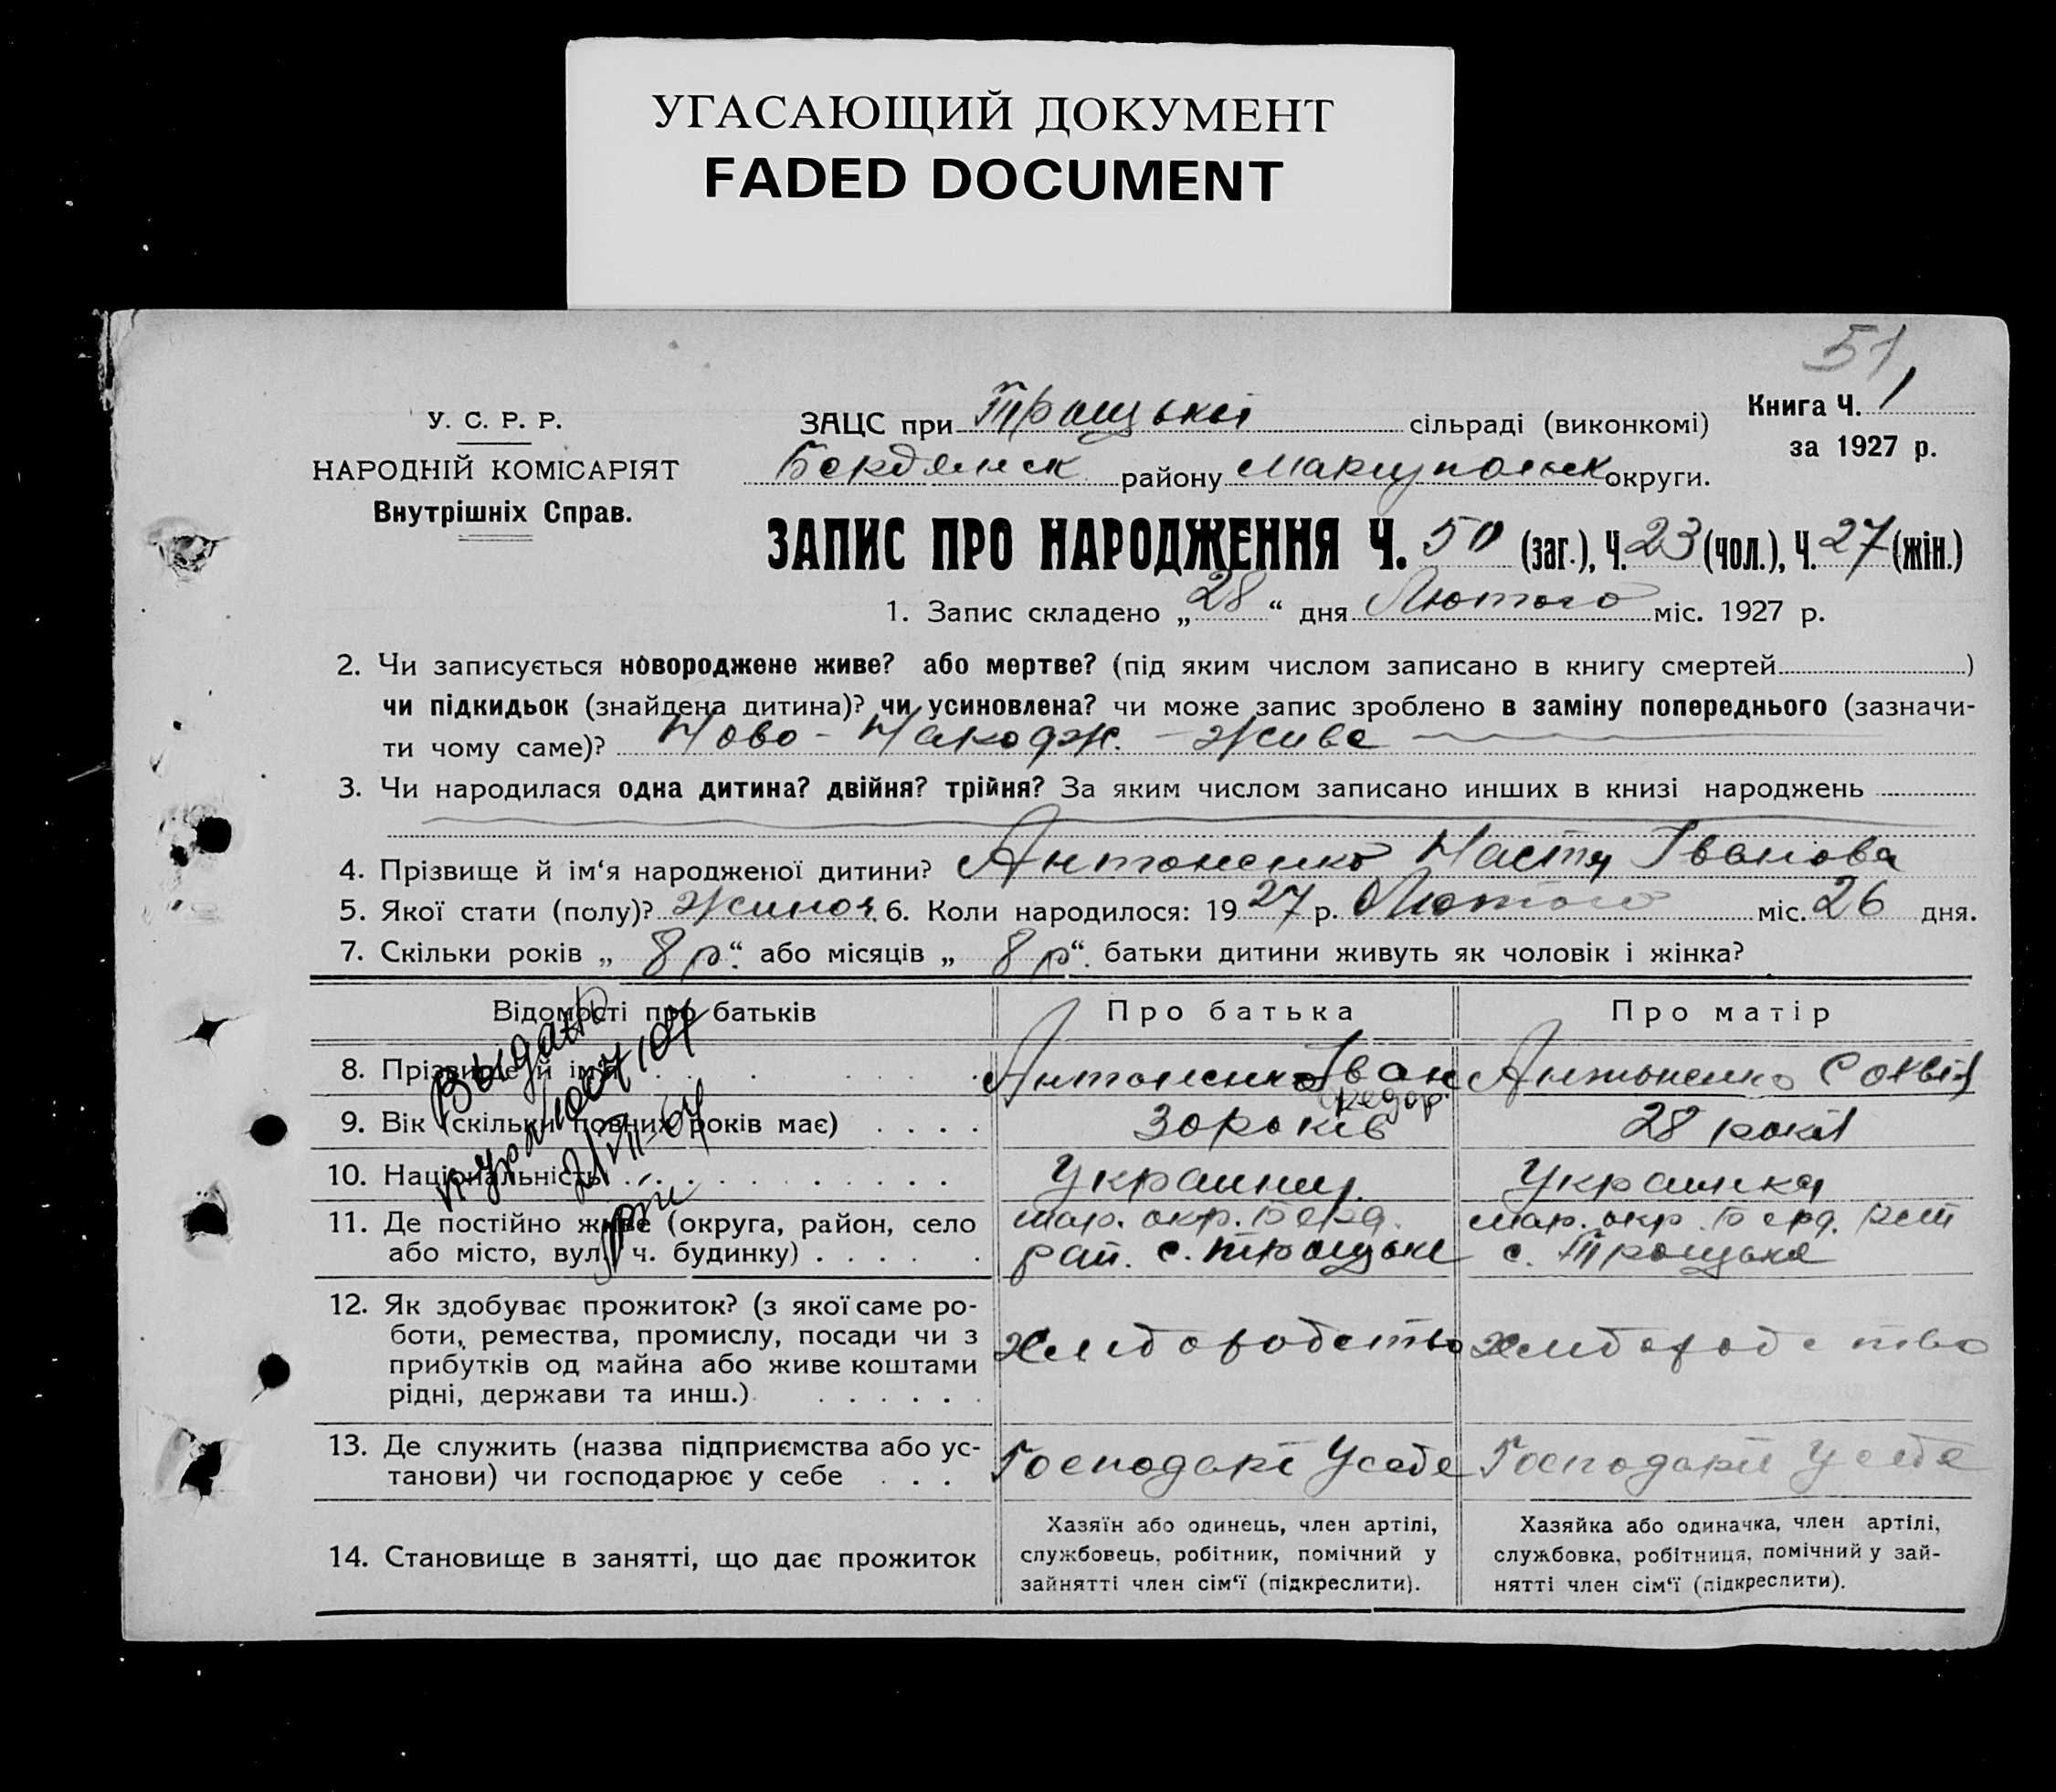 УГАСАЮЩИЙ ДОКУМЕНТ
FADED DOCUMENT
51
У. С. Р. Р.
НАРОДНІЙ КОМІСАРІЯТ
Внутрішніх Справ.
ЗАЦС при Троцькій сільраді (виконкомі)
Бердянск району Мариупольск округи.
Книга Ч. 1
за 1927 р.
ЗАПИС ПРО НАРОДЖЕННЯ Ч. 50 (заг.), Ч. 23 (чол.), Ч. 27 (жін.)
1. Запис складено „ 28 “ дня Лютого міс. 1927 р.
2. Чи записується новороджене живе? або мертве? (під яким числом записано в книгу смертей )
чи підкидьок (знайдена дитина)? чи усиновлена? чи може запис зроблено в заміну попереднього (зазначи-
ти чому саме)? Ново-Накодж. - живе
3. Чи народилася одна дитина? двійня? трійня? За яким числом записано инших в книзі народжень
4. Прізвище й ім‘я народженої дитини? Антоненко Настя Іванова
5. Якої стати (полу)? жиноч. 6. Коли народилося: 19 27 р. Лютого міс. 26 дня.
7. Скільки років „ 8 р “. або місяців „ 8 р “. батьки дитини живуть як чоловік і жінка?
Відомості про батьків
Про батька
Про матір
8. Прізвище й ім‘я
Антоненко Іван
Федор.
Антоненко Софія
9. Вік (скільки повних років має)
30 років
28 років
10. Національність
Украинец
Украинка
11. Де постійно живе (округа, район, село
або місто, вул., ч. будинку)
мар. окр. Берд.
рай. с. Троцьке
мар. окр. Берд. рай
с. Троцьке
12. Як здобуває прожиток? (з якої саме ро-
боти, ремества, промислу, посади чи з
прибутків од майна або живе коштами
рідні, держави та инш.)
хлиборобство
хлиборобство
13. Де служить (назва підприємства або ус-
танови) чи господарює у себе
Господарі Усебе
Господарит Усебе
14. Становище в занятті, що дає прожиток
Хазяїн або одинець, член артілі,
службовець, робітник, помічний у
зайнятті член сім‘ї (підкреслити).
Хазяйка або одиначка, член артілі,
службовка, робітниця, помічний у зай-
нятті член сім‘ї (підкреслити).
Выдано
21/VII-64